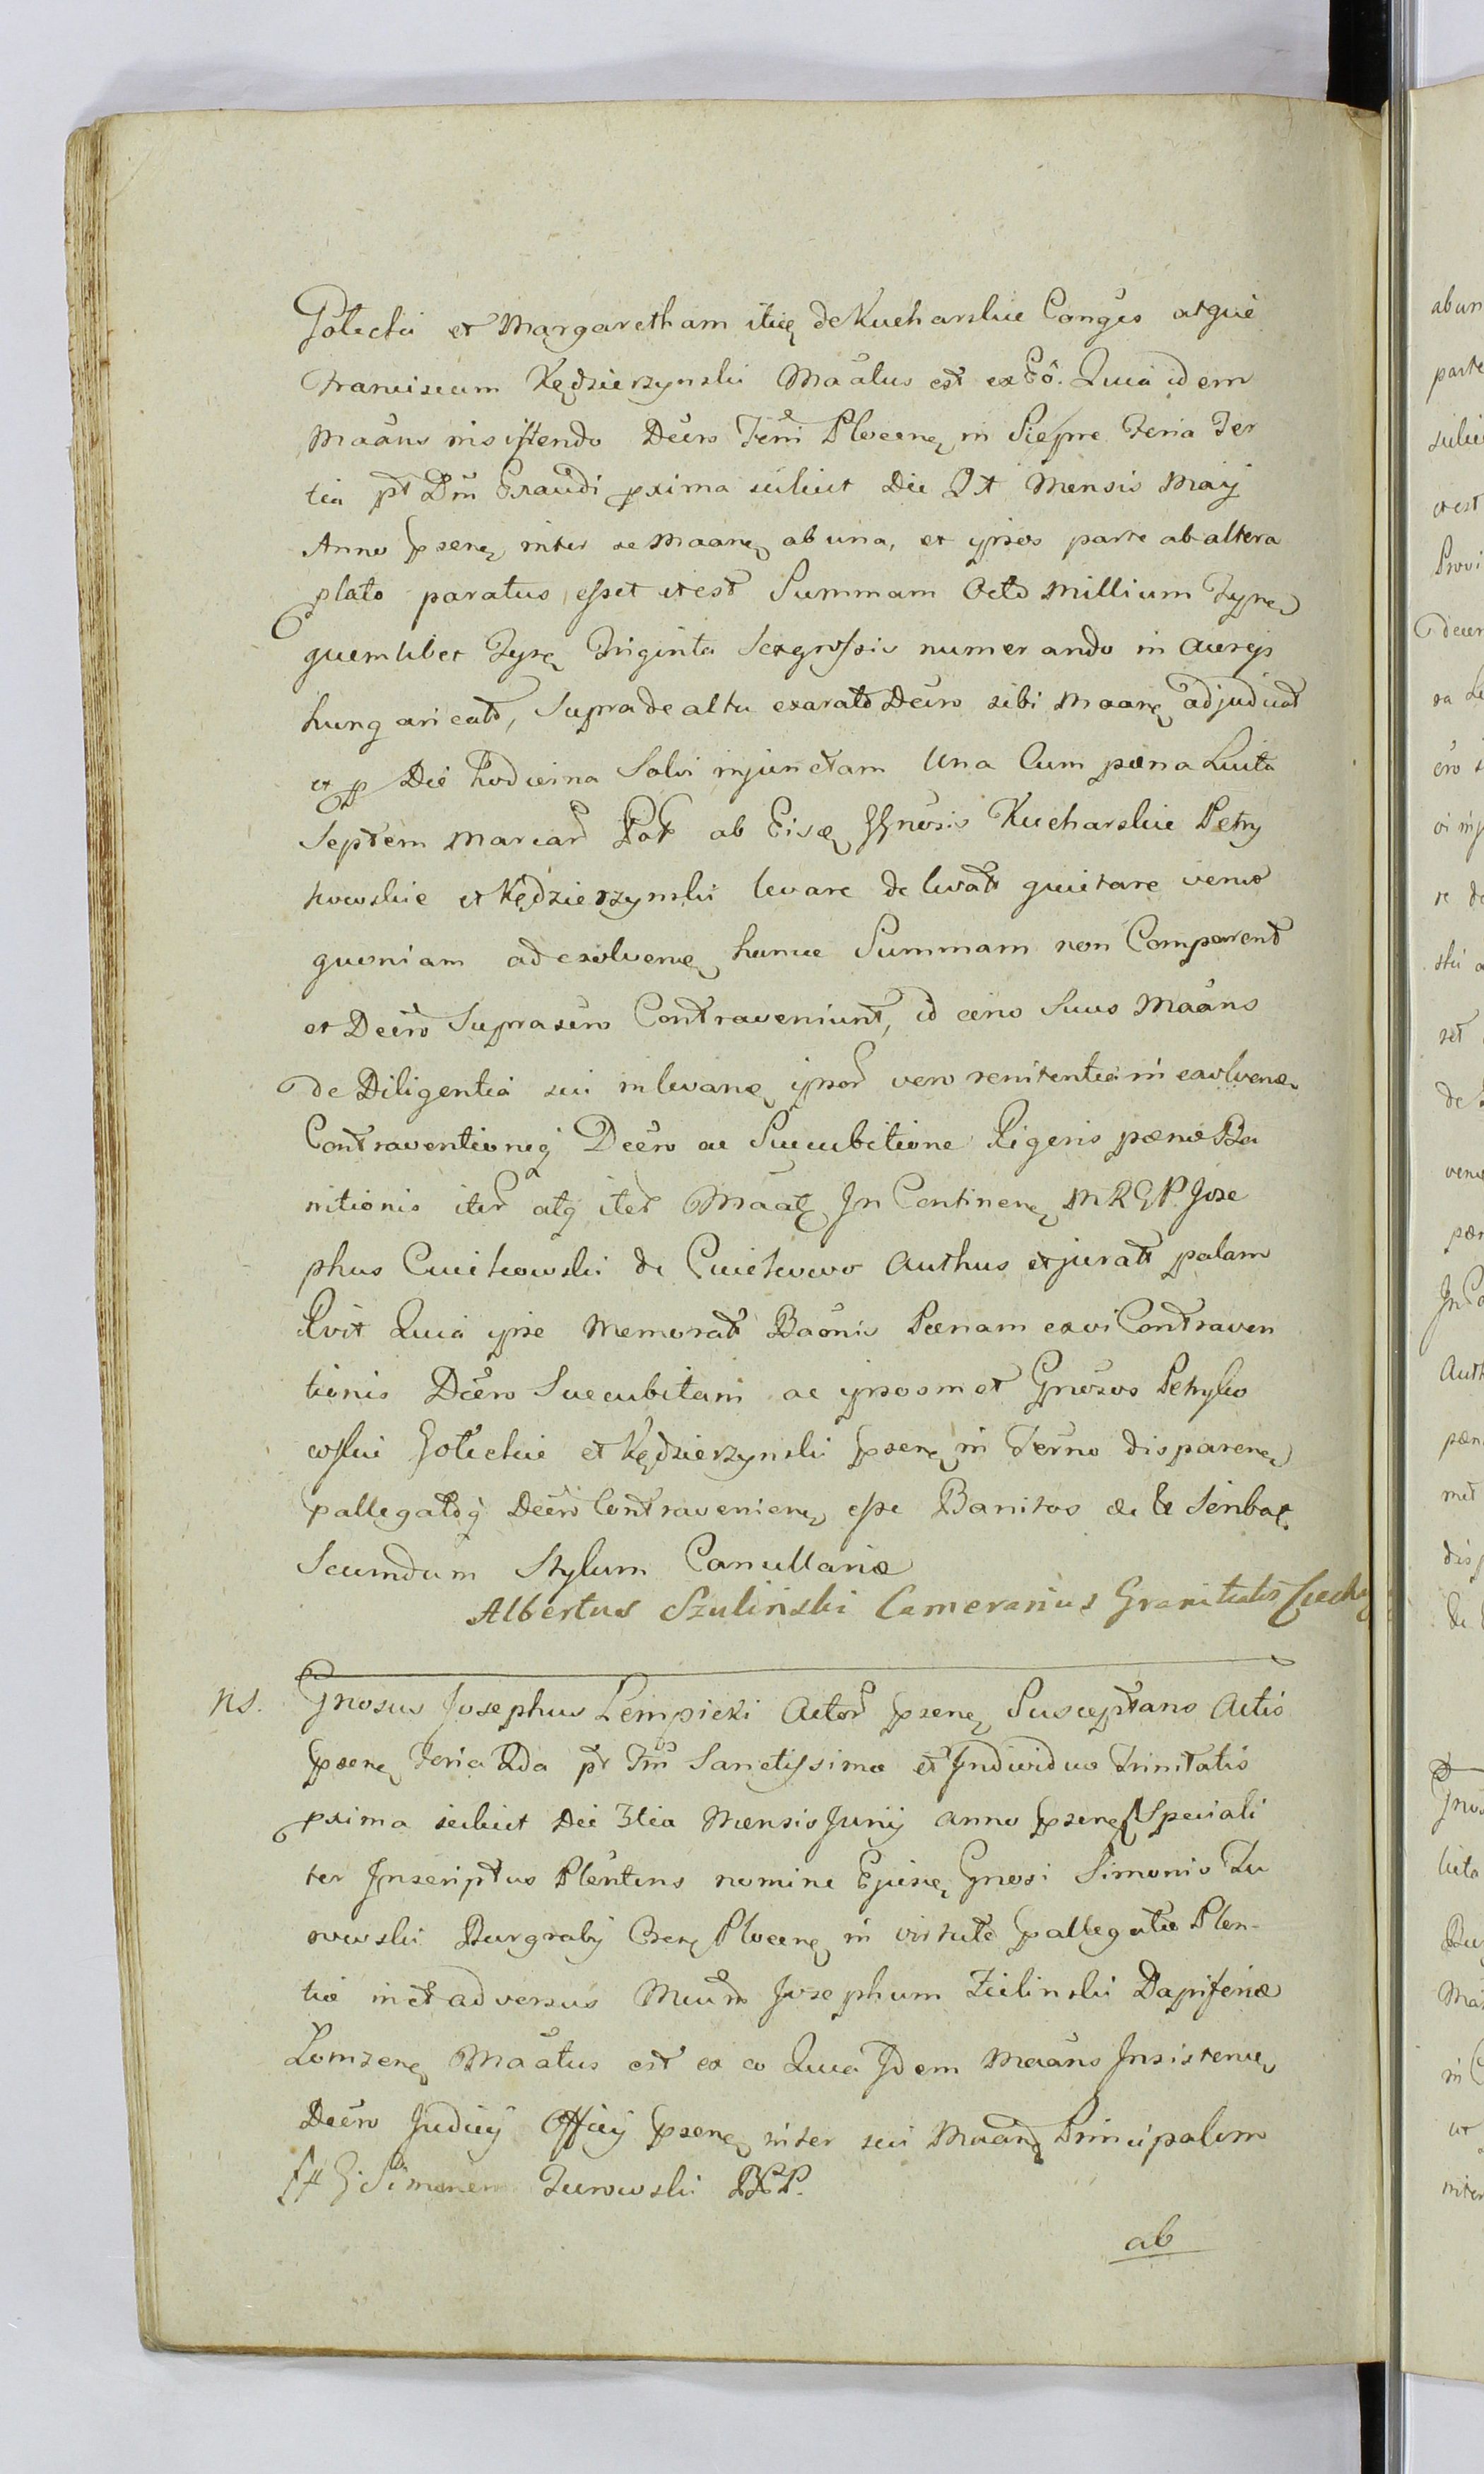 Golecki et Margaretham itidę de Kucharskie Conges atque
Franciscum Kędzierzynski Maãtus est ex Eo. Quia idem
Maãns insistendo Decro Terri Plocenę in Sierpce Feria Ter
tia pt Dm Exaudi pxima scilicet Die 21 Mensis Maij
Anno psenę inter se Maanę ab una, et ipsos parte ab altera
plato paratus esset et est Summam Octo Millium Tynf
quemlibet Tynf Triginta Sex grossis numerando in Aureis
hungaricalt, Supra de altu exarato Decro sibi Maanę adjudicat
et p Die hodierna Solvi injunctam Una Cum pæna Luita
Septem Marcar Pol ab Eisdę GGnosis Kucharskie Petry
kowskie et Kędzierzynski levare de levatis quietare venit
quoniam ad exolvenę hancce Summam non Comparent
et Decro Suprasero Contraveniunt, id circo Suus Maãns
de Diligentia sui in levanę ipsor vero renitentia in exolvenę
Contraventioneq Decro ac Succubitione Rigoris pænæ Ba
nitionis iter atq iter Maatę In Continenę MRGP. Jose
phus Cwiekowski de Cwiekowo Authus et jurats palam
Rvit Quia ipse Memorat Baonis Pænam ex vi Contraven
tionis Decro Succubitam ac ipsosmet Gnosos Petryko
wskie Goleckie et Kędzierzynski psenę in Terno disparenę
pallegatoq Decro Contravenienę esse Banitos de quo scribat
Secundum Stylum Cancellariæ
Albertus Szulinski Camerarius Granitialis Ciecha
ns. Gnosus Josephus Lempicki Actor psenę Susceptans Actis
psenę Feria 2da pt Fm Sanctissimæ et Individuæ Trinitatis
pxima scilicet Die 3tia Mensis Junij Anno psenę Speciali
ter Inscriptus Plentens nomine Ejusdę Gnosi Simonis Zu
rowski Burgrabij Csen Plocenę in virtute pallegatæ Plen-
tiæ in et adversus Mcum Josephum Zielinski Dapiferiæ
Lomzenę Maãtus est ex eo Quia Idem Maãns Insistenę
Decro Judicij Officij psenę inter sui Maanę Principalem
G. Simonem Zurowski BCP.
ab